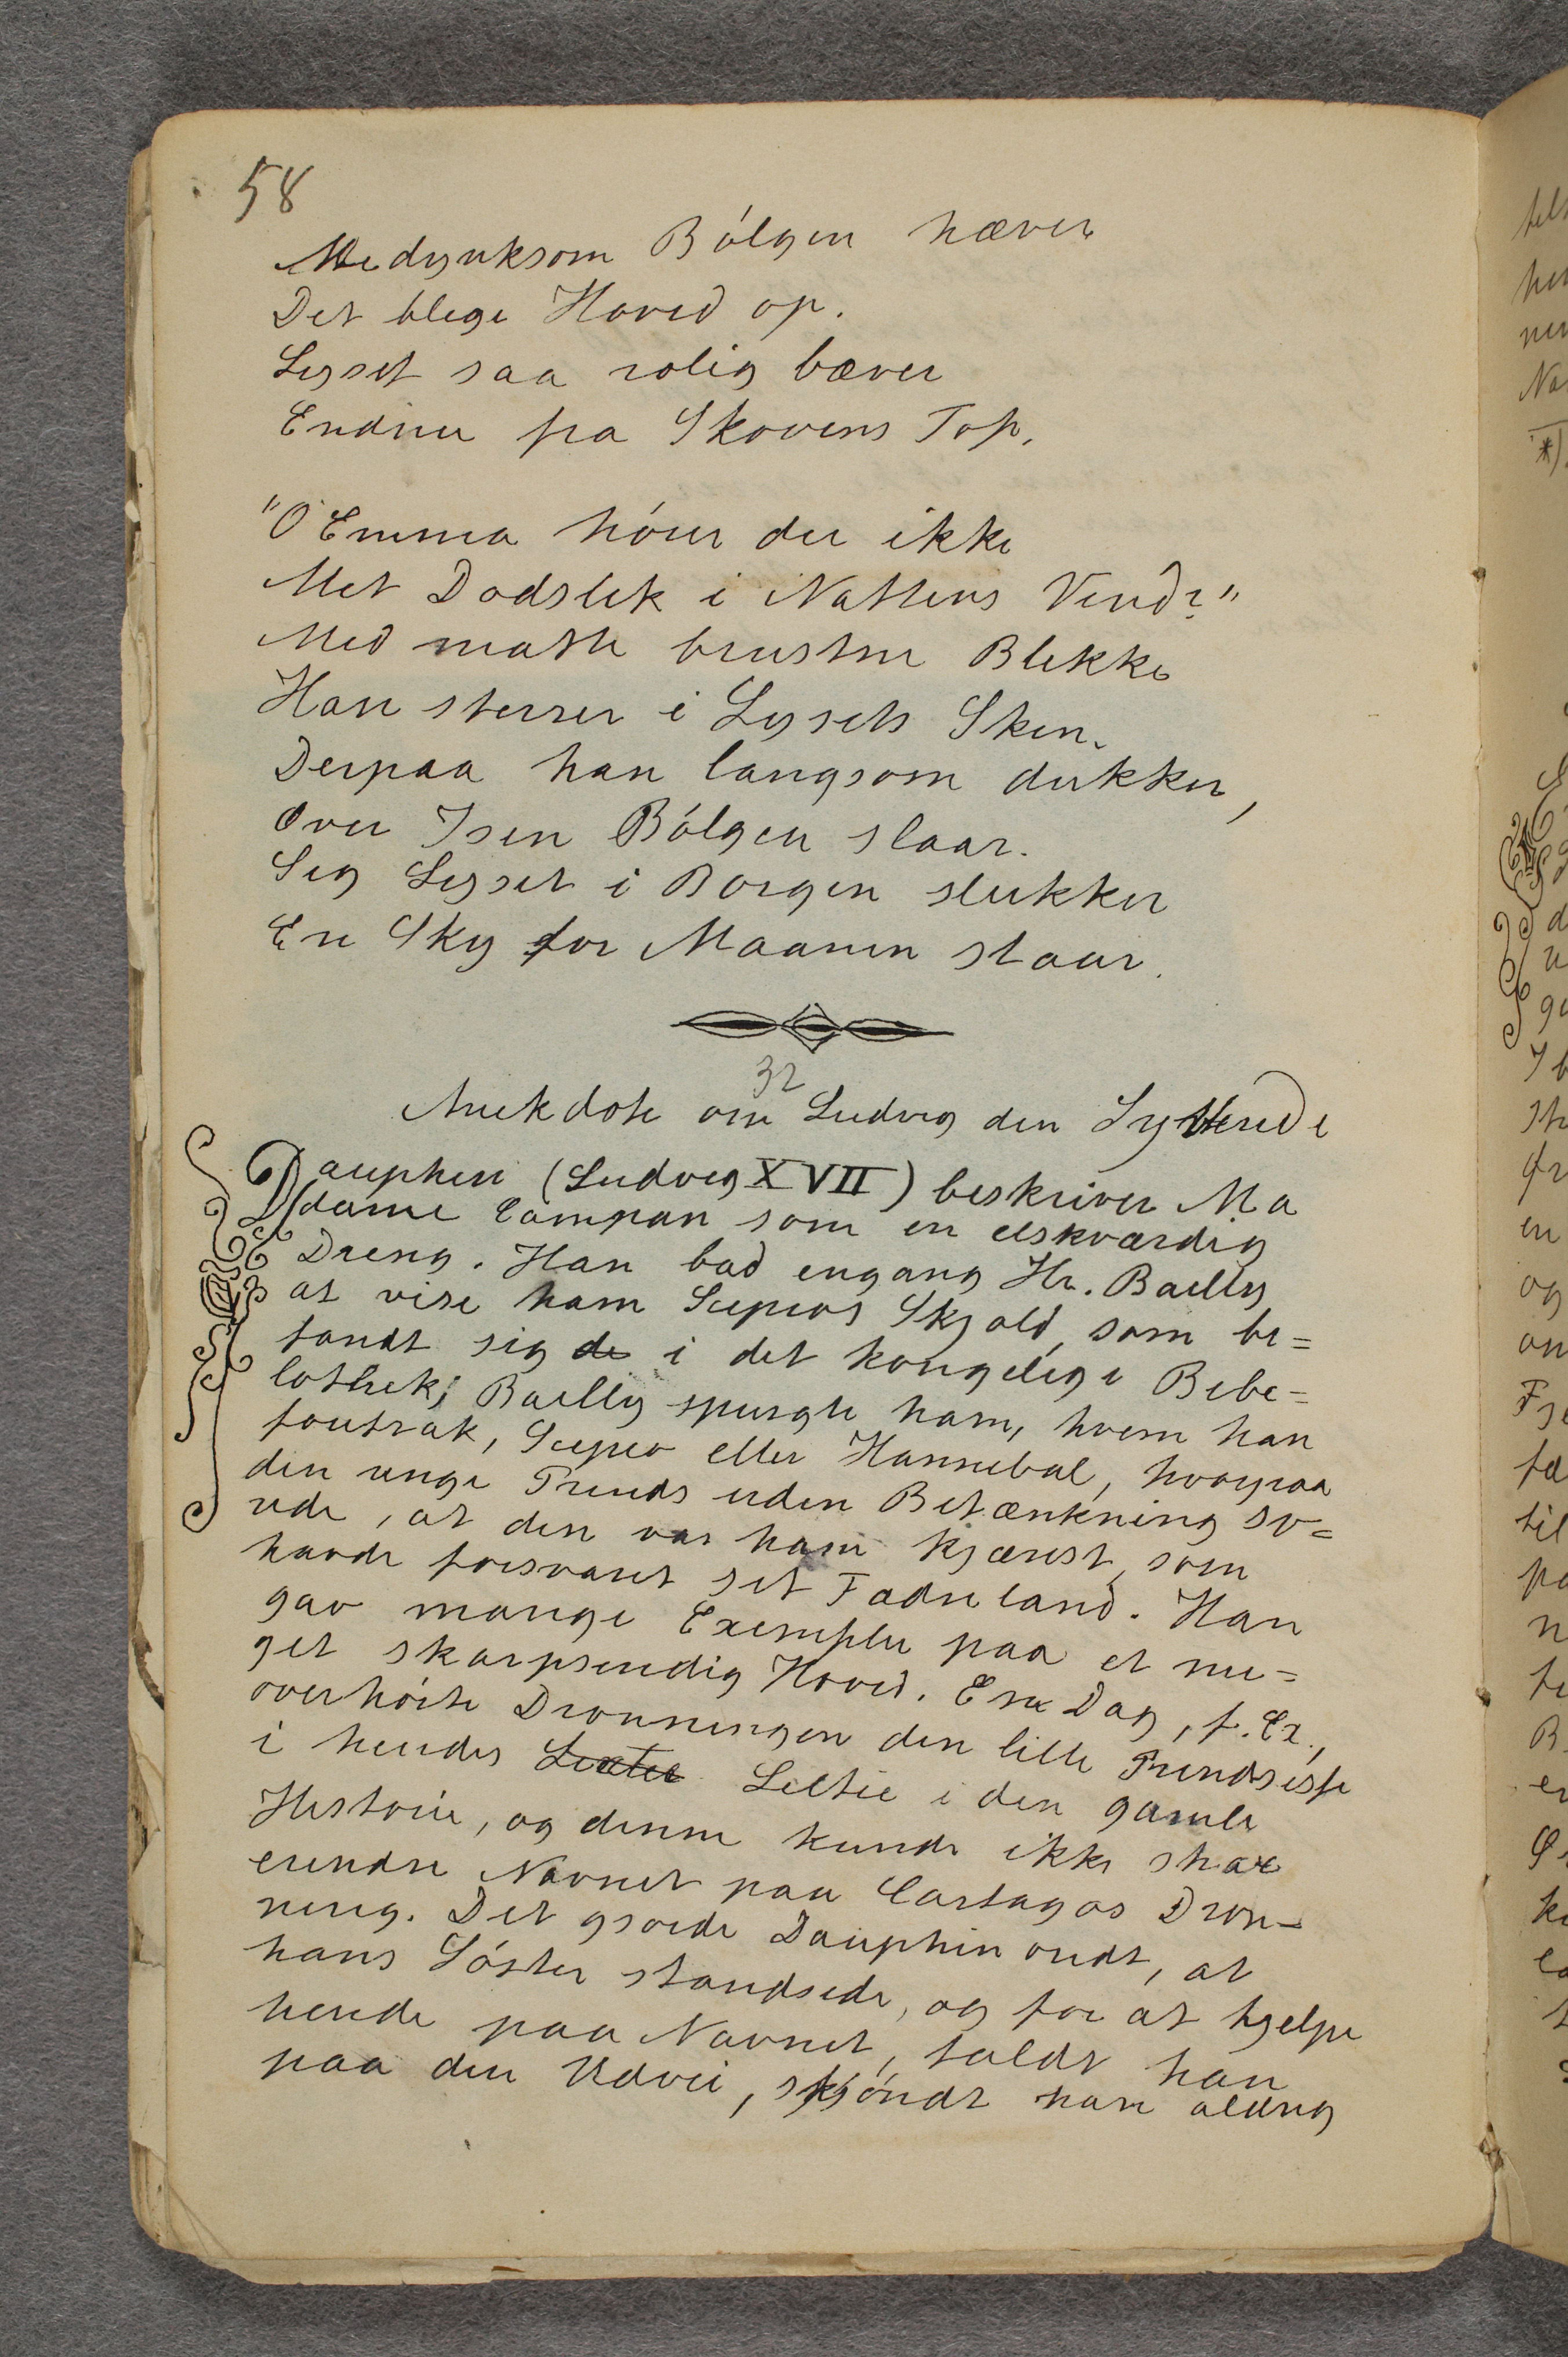 58
Medynksom Bólgen hæver
Det blege Hoved op.
Lyset saa rolig bæver
Endnu fra Skovens Top.
"O Emma hórer du ikke
Met Dødslik i Nattens Vind?"
Med matte brustne Blikke
Han sterrer i Lysets Sken.
Derpaa han langsom dukker,
Over Isen Bólgen slaar.
Sig Lyset i Borgen slukker
En Sky for Maanen staar.
32
Anekdote om Ludvig den Syttende
Dauphin (Ludvig XVII) beskriver Ma
dame Campan som en elskværdig
Dreng. Han bad engang Hr. Bailly
at vise ham Scipios Skjold, som be=
fandt sig de i det kongelige Bibe=
lothek; Bailly spurgte ham, hvem han
foutrak, Scipio eller Hannibal, hvorpaa
den unge Prinds uden Betænkning sv=
ede, at den var ham kjærest, som
havde forsvaret sit Fædreland. Han
gav mange Exempler paa et me=
get skarpsindig Hoved. En Dag, f. Ex.,
overhórte Dronningen den lille Prindsesse
i hendes Lextee Lektie i den gamle
Historie, og denne kunde ikke strax
erindre Navnet paa Cartagos Dron=
ning. Det gjorde Dauphin ondt, at
hans Sóster standsede, og for at hjelpe
hende paa Navnet, faldt han
paa den Udvei, skjóndt han aldrig